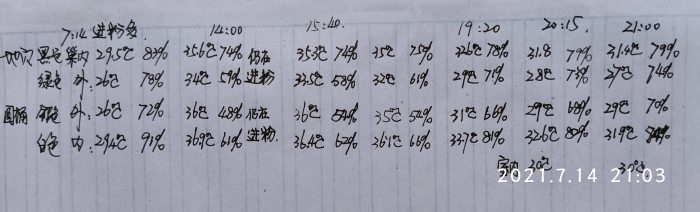 7:14 进粉多. 14:00 15:40. 19:20 20:15. 21:00
黑色 巢内 29.5℃ 83% 35.6℃ 74% 仍在 35.3℃ 74% 35℃ 75% 32.6℃ 78% 31.8 79% 31.4℃ 79%
绿色 外: 26℃ 78% 34℃ 59% 进粉 33.5℃ 58% 32℃ 61% 29℃ 71% 28℃ 73% 27℃ 74%
圆桶 外: 26℃ 72% 36℃ 48% 仍在 36℃ 54% 35℃ 54% 31℃ 66% 29℃ 68% 29℃ 70%
白色 内: 29.4℃ 91% 36.9℃ 61% 进粉. 36.4℃ 62% 36.1℃ 66% 33.7℃ 81% 32.6℃ 80% 31.9℃
室内 30℃ 30℃
2021.7.14 21:03